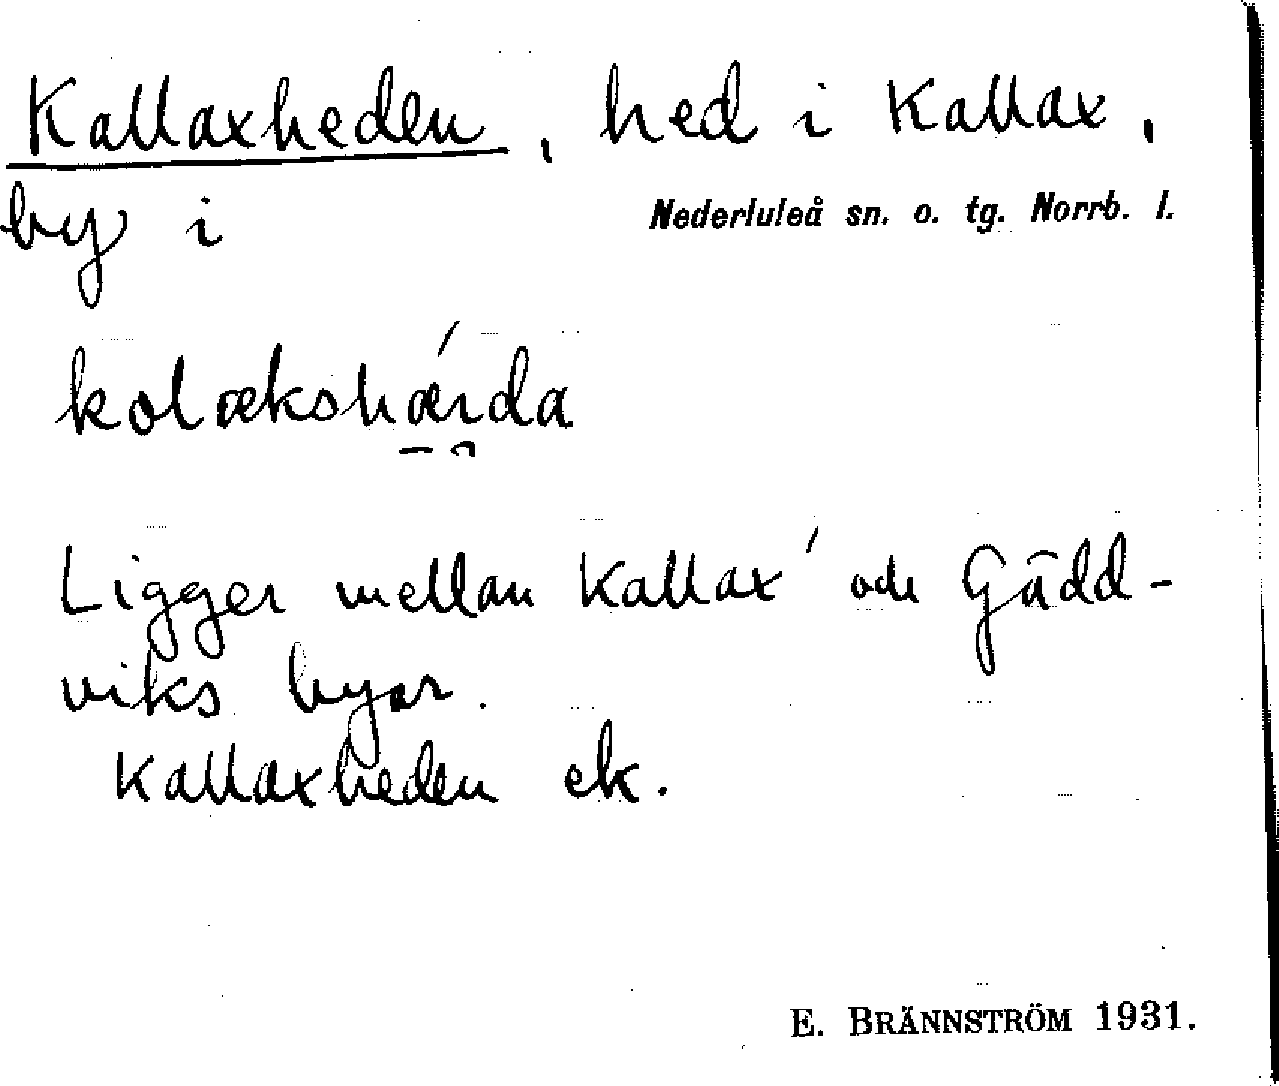 Kallaxheden, hed i Kallax,
by i Nederluleå sn. o. tg. Norrb. l.
kolækshǽrda
Ligger mellan Kallax' och Gädd-
viks byar.
Kallaxheden ek.
E. BRÄNNSTRÖM 1931.